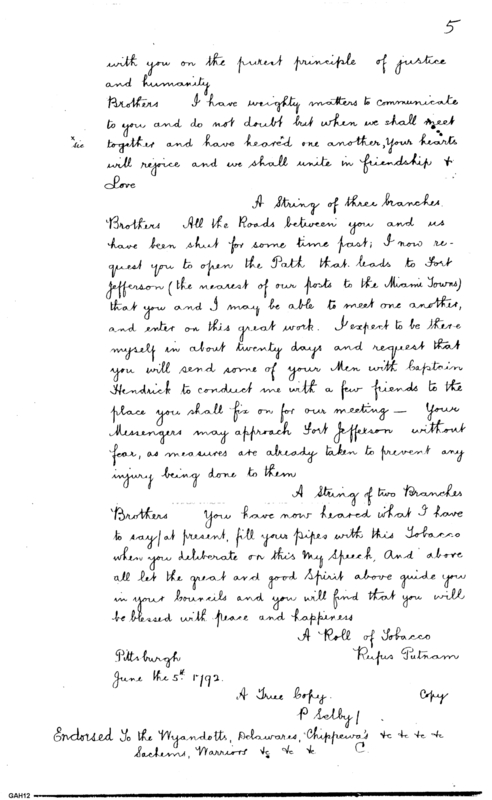 5
with you on the purest principle of justice
and humanity
Brothers I have weighty matters to communicate
to you and do not doubt but when we shall meet
x sic together and have heared one another, Your hearts
will rejoice and we shall unite in friendship &
Love
A String of three branches.
Brothers All the Roads between you and us
have been shut for some time past; I now re-
quest you to open the Path that leads to Fort
Jefferson (the nearest of our posts to the Miami Towns)
that you and I may be able to meet one another,
and enter on this great work. I expect to be there
myself in about twenty days and request that
you will send some of your Men with Captain
Hendrick to conduct me with a few friends to the
place you shall fix on for our meeting — Your
Messengers may approach Fort Jefferson without
fear, as measures are already taken to prevent any
injury being done to them
A String of two Branches
Brothers You have now heared what I have
to say/at present, fill your pipes with this Tobacco
when you deliberate on this My Speech, And above
all let the great and good Spirit above guide you
in your Councils and you will find that you will
be blessed with peace and happiness
A Roll of Tobacco
Pittsburgh Rufus Putnam
June the 5th 1792.
A True Copy. Copy
P Selby/
Endorsed To the Wyandotts, Delawares, Chippewa's &c &c &c &c
Sachems, Warriors &c &c &c C.
GAH12